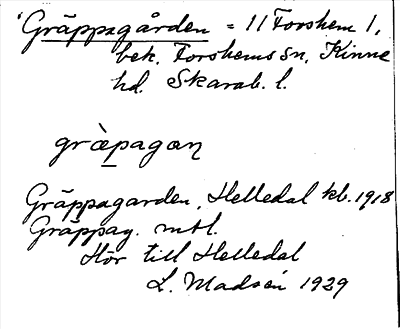 'Gräppagården = 11 Forshem 1,
bek. Forshems sn, Kinne
hd. Skarab. l.
gràpagaɳ
Gräppagarden, Helledal kb. 1918
Gräppag. mtl.
Hör till Helledal
L. Madsén 1929